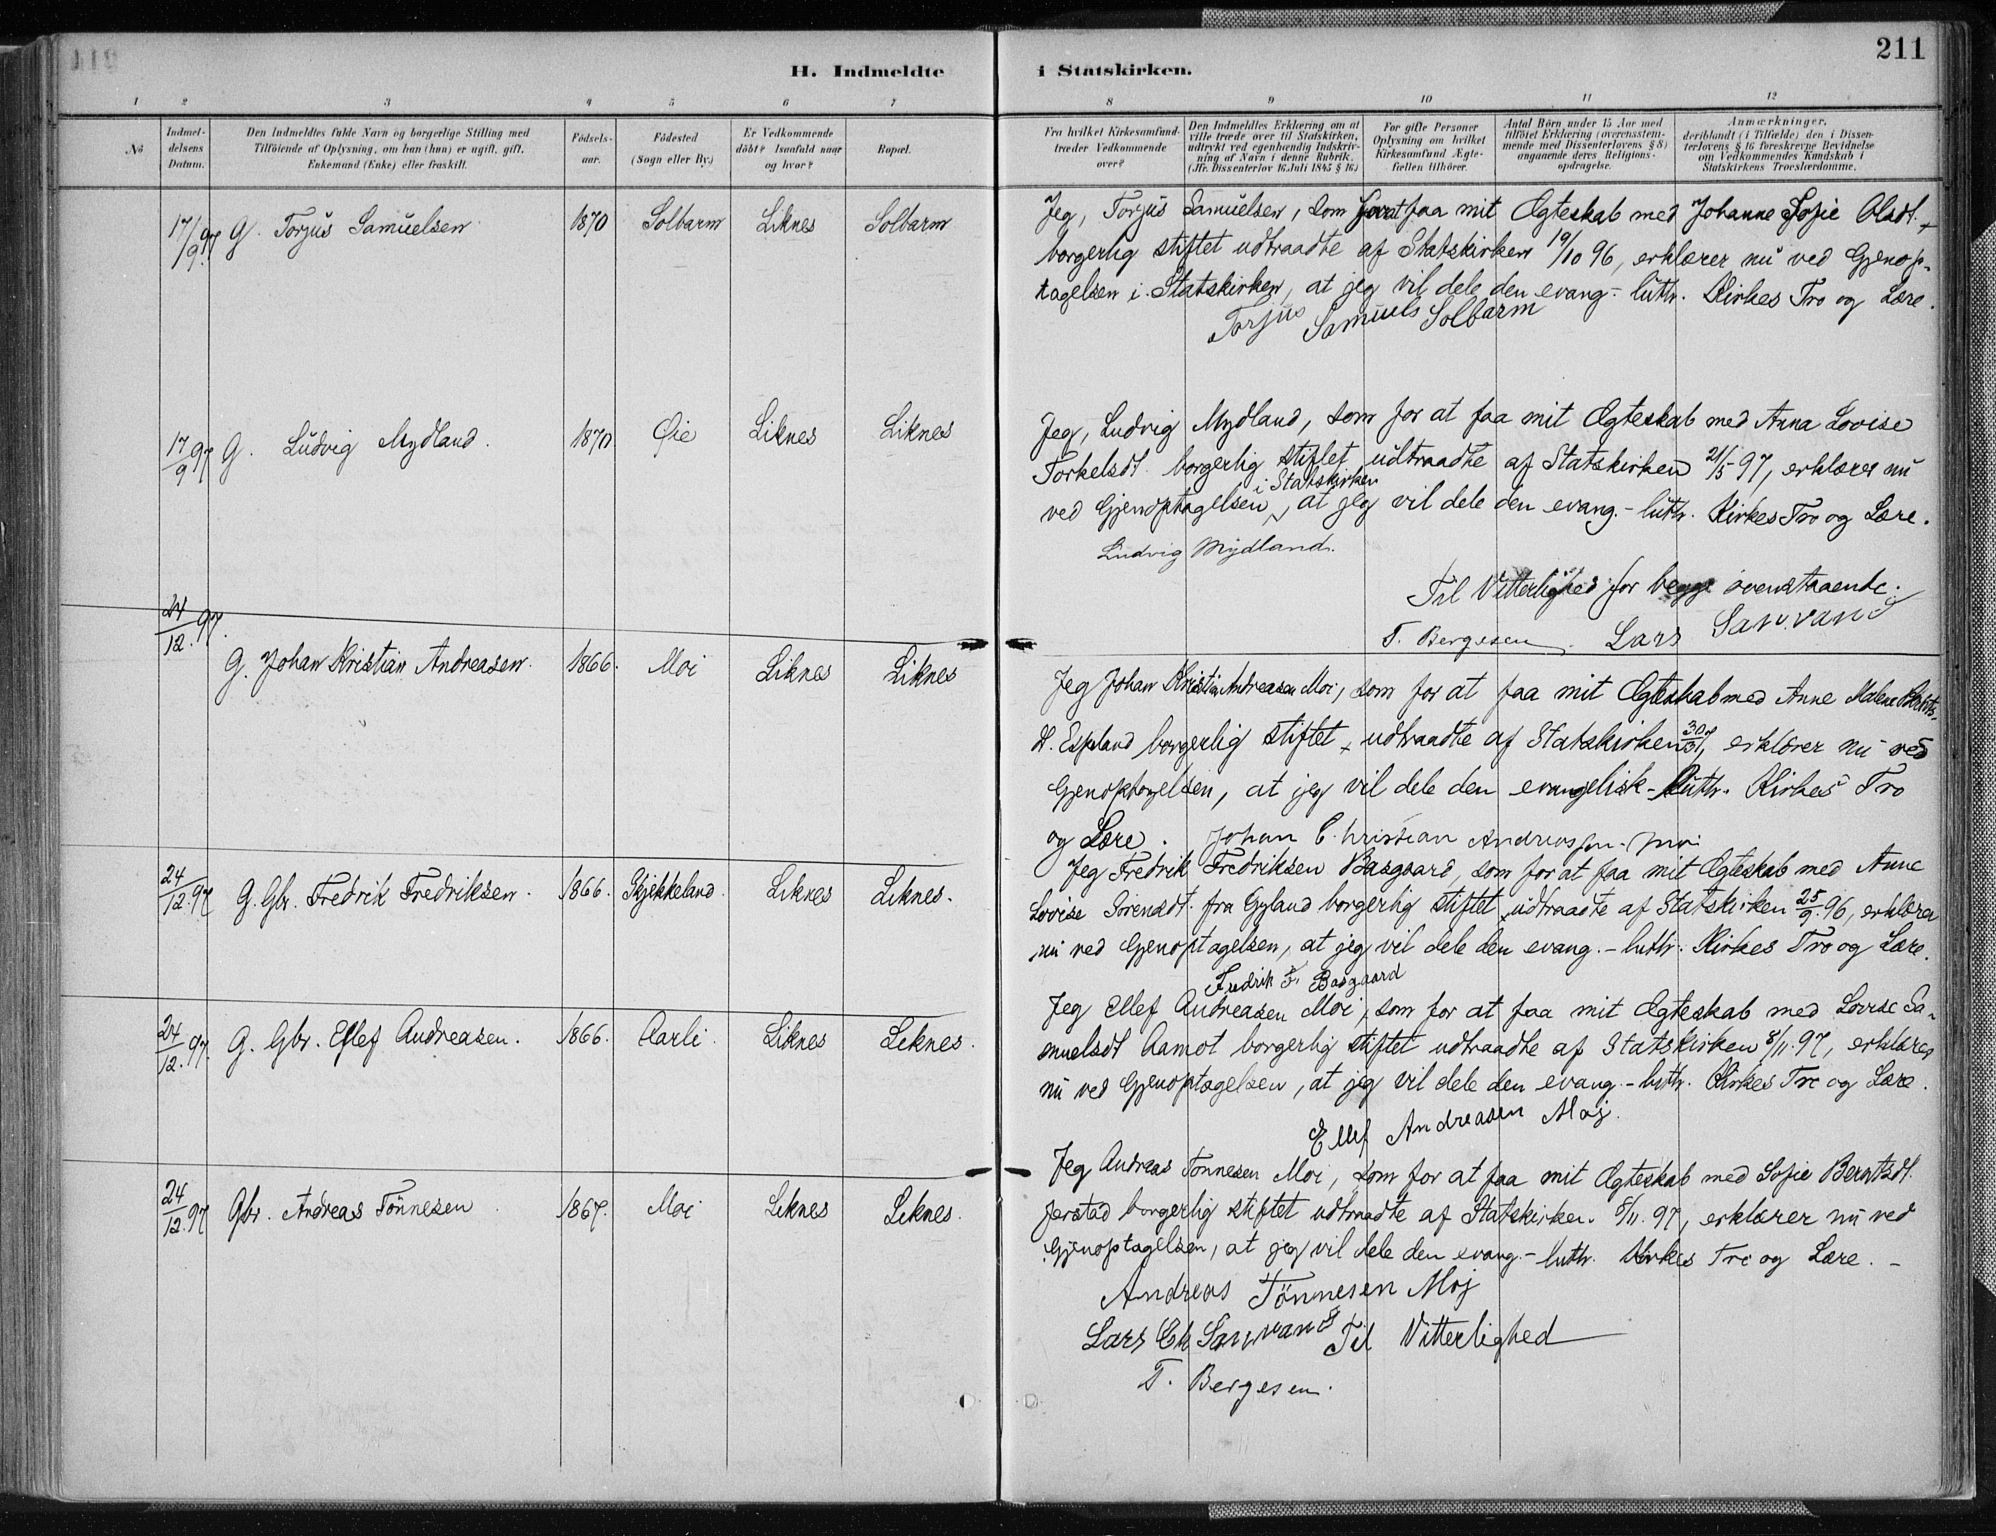 211
H. Indmeldte i Statskirken.
1 2 3 4 5 6 7 8 9 10 11 12
No
Indmel-
delsens
Datum.
Den Indmeldtes fulde Navn og borgerlige Stilling med
Tilföiende af Oplysning, om han (hun) er ugift, gift,
Enkemand (Enke) eller fraskilt.
Födsels-
aar.
Födested
(Sogn eller By.)
Er Vedkommende
döbt? Isaafald naar
og hvor?
Bopæl.
Fra hvilket Kirkesamfund
træder Vedkommende
over?
Den Indmeldtes Erklæring om at
ville træde over til Statskirken,
udtrykt ved egenhændig Indskriv-
ning af Navn i denne Rubrik.
(Jfr. Dissenterlov 16. Juli 1845 § 16.)
For gifte Personer
Oplysning om hvilket
Kirkesamfund Ægte-
fællen tilhörer.
Antal Börn under 15 Aar med
tilföiet Erklæring (overensstem-
mende med Dissenterlovens § 8)
angaaende deres Religions-
opdragelse.
Anmærkninger,
deriblandt (i Tilfælde) den i Dissen-
terlovens § 16 foreskrevne Bevidnelse
om Vedkommendes Kundskab i
Statskirkens Troeslærdomme.
17/9 97 G. Torjus Samuelsen 1870 Solbarm Liknes Solbarm
Jeg, Torjus Samuelsen, som for at faa mit Ægteskab med Johanne Sofie Olsdt.
borgerlig stiftet udtraadte af Statskirken 19/10 96, erklærer nu ved Gjenop-
tagelsen i Statskirken, at jeg vil dele den evang.- luth. Kirkes Tro og Lære.
Torjus Samuels Solbarm
17/9 97 G. Ludvig Mydland. 1870 Øie Liknes Liknes
Jeg, Ludvig Mydland, som for at faa mit Ægteskab med Anna Lovise
Torkelsdt. borgerlig stiftet udtraadte af Statskirken 21/5 97, erklærer nu
i Statskirken
ved Gjenoptagelsen, at jeg vil dele den evang.- luth. Kirkes Tro og Lære.
Ludvig Mydland.
Til Vitterlighed for begge ovenstaaende.
T. Bergesen. Lars Sanvand
24/12. 97. G. Johan Kristian Andreasen. 1866. Moi Liknes Liknes
Jeg Johan Kristian Andreasen Moi, som for at faa mit Ægteskab med Anne Malene
dt. Espland borgerlig stiftet udtraadte af Statskirken erklærer nu ved
Gjenoptagelsen, at jeg vil dele den evangelisk-luth. Kirkes Tro
og Lære. Johan Christian Andreassen. Moi
24/12. 97 G. Gbr. Fredrik Fredriksen. 1866. Skjekkeland. Liknes Liknes.
Jeg Fredrik Fredriksen Basgaard, som for at faa mit Ægteskab med Anne
Lovise Sørensdt. fra Gyland borgerlig stiftet udtraadte af Statskirken 25/9. 96, erklærer
nu ved Gjenoptagelsen, at jeg vil dele den evang.- luth. Kirkes Tro og Lære.
Fredrik F. Basgaard
24/12. 97. G. Gbr. Ellef Andreasen. 1866. Aarli. Liknes Liknes.
Jeg Ellef Andreasen Moi, som for at faa mit Ægteskab med Lovise Sa-
muelsdt Aamot borgerlig stiftet udtraadte af Statskirken 8/11. 97, erklærer
nu ved Gjenoptagelsen, at jeg vil dele den evang.- luth. Kirkes Tro og Lære.
Ellef Andreasen Moj.
24/12. 97 Gbr. Andreas Tönnesen 1867. Moi Liknes Liknes.
Jeg Andreas Tönnesen Moi, som for at faa mit Ægteskab med Sofie Berntsdt.
Jerstad borgerlig stiftet udtraadte af Statskirken 8/11. 97, erklærer nu ved
Gjenoptagelsen, at jeg vil dele den evang.- luth. Kirkes Tro og Lære. -
Andreas Tönnesen Moj
Lars Ch Sanvand Til Vitterlighed
T. Bergesen.